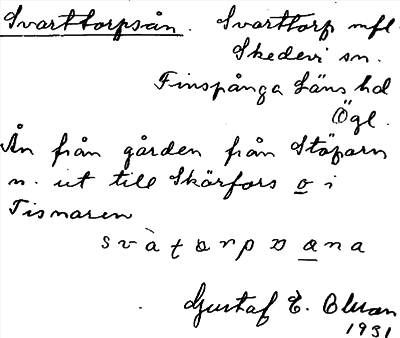 Svarttorpsån. Svarttorp mfl.
Skedevi sn.
Finspånga Läns hd
Ögl.
Ån från gården från Stöparn
n. ut till Skärfors o i
Tisnaren
Gustaf E.
1931